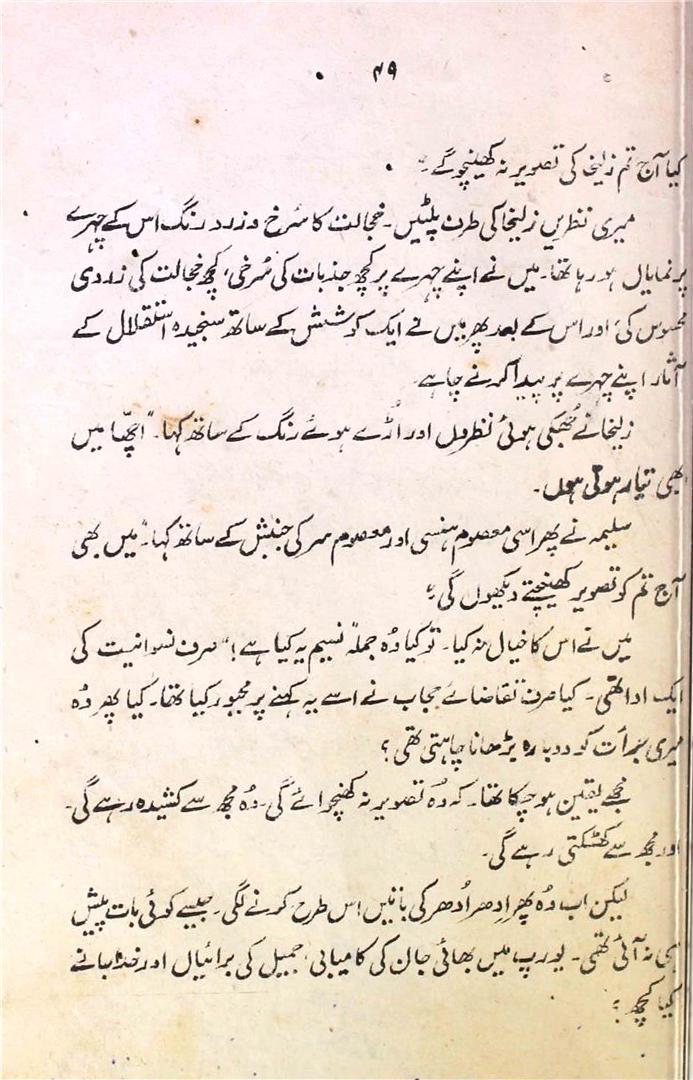 ۴۹
کیا آج تم زلیخا کی تصویر نہ کھینچوگے۔"
میری نظریں زلیخا کی طرف پلٹیں۔ خجالت کا سُرخ و زرد رنگ اس کے چہرے
پر نمایاں ہو رہا تھا۔ میں نے اپنے چہرے پر کچھ جذبات کی سُرخی، کچھ خجالت کی زردی
محسوس کی اور اس کے بعد پھر میں نے ایک کوشش کے ساتھ سنجیدہ استقلال کے
آثار اپنے چہرے پر پیدا کرنے چاہے۔
زلیخا نے جُھکی ہوئی نظروں اور اُڑے ہوئے رنگ کے ساتھ کہا۔ "اچّھا میں
ابھی تیار ہوتی ہوں۔
سلیمہ نے پھر اسی معصوم ہنسی اور معصوم سر کی جنبش کے ساتھ کہا۔ "میں بھی
آج تم کو تصویر کھینچتے دیکھوں گی۔"
میں نے اس کا خیال نہ کیا۔ تو کیا وُہ جملہ "نسیم یہ کیا ہے!" صرف نسوانیت کی
ایک ادا تھی۔ کیا صرف تقاضائے حجاب نے اسے یہ کہنے پر مجبور کیا تھا۔ کیا پھر وُہ
میری جرأت کو دوبارہ بڑھانا چاہتی تھی؟
مجھے یقین ہو چکا تھا۔ کہ وُہ تصویر نہ کھنچوائے گی۔ وُہ مجھ سے کشیدہ رہے گی۔
اور مجھ سے کھٹکتی رہے گی۔
لیکن اب وُہ پھر اِدھر اُدھر کی باتیں اس طرح کرنے لگی۔ جیسے کوئی بات پیش
ہی نہ آئی تھی۔ یورپ میں بھائی جان کی کامیابی، جمیل کی برائیاں اور خدا جانے
کیا کچھ؟